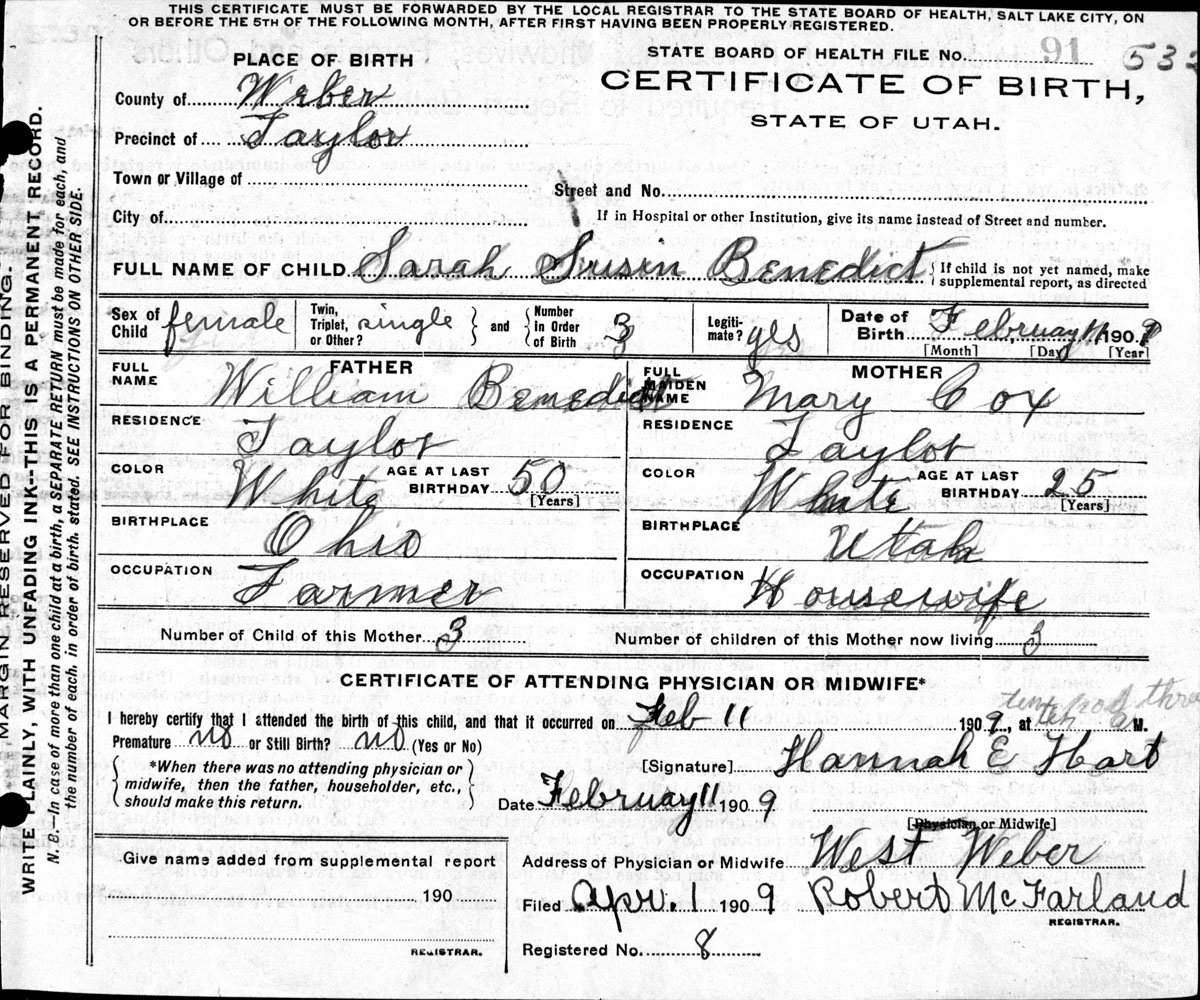 THIS CERTIFICATE MUST BE FORWARDED BY THE LOCAL REGISTRAR TO THE STATE BOARD OF HEALTH, SALT LAKE CITY, ON
OR BEFORE THE 5TH OF THE FOLLOWING MONTH, AFTER FIRST HAVING BEEN PROPERLY REGISTERED.
MARGIN RESERVED FOR BINDING.
WRITE PLAINLY, WITH UNFADING INK--THIS IS A PERMANENT RECORD.
N. B.—In case of more than one child at a birth, a SEPARATE RETURN must be made for each, and
the number of each, in order of birth, stated. SEE INSTRUCTIONS ON OTHER SIDE.
PLACE OF BIRTH
STATE BOARD OF HEALTH FILE NO. 91
CERTIFICATE OF BIRTH,
STATE OF UTAH.
County of Weber
Precinct of Taylor
Town or Village of
Street and No.
City of
If in Hospital or other Institution, give its name instead of Street and number.
FULL NAME OF CHILD Sarah Benedict { If child is not yet named, make
supplemental report, as directed
Sex of Child female Twin, Triplet, or Other? single } and { Number In Order of Birth 3 Legiti- mate? yes Date of Birth February 11 1909
[Month] [Day] [Year]
FATHER
FULL NAME William Benedict
RESIDENCE Taylor
COLOR White AGE AT LAST BIRTHDAY 50 [Years]
BIRTHPLACE Ohio
OCCUPATION Farmer
MOTHER
FULL MAIDEN NAME Mary Cox
RESIDENCE Taylor
COLOR White AGE AT LAST BIRTHDAY 25 [Years]
BIRTHPLACE Utah
OCCUPATION Housewife
Number of Child of this Mother 3 Number of children of this Mother now living 3
CERTIFICATE OF ATTENDING PHYSICIAN OR MIDWIFE*
I hereby certify that I attended the birth of this child, and that it occurred on Feb 11 1909, at ten a M.
Premature no or Still Birth? no (Yes or No)
*When there was no attending physician or
midwife, then the father, householder, etc.,
should make this return.
[Signature] Hannah E Hart
Date February 11 1909
[Physician or Midwife]
Give name added from supplemental report
190
REGISTRAR.
Address of Physician or Midwife West Weber
Filed Apr. 1 1909 Robert McFarland
REGISTRAR.
Registered No. 8